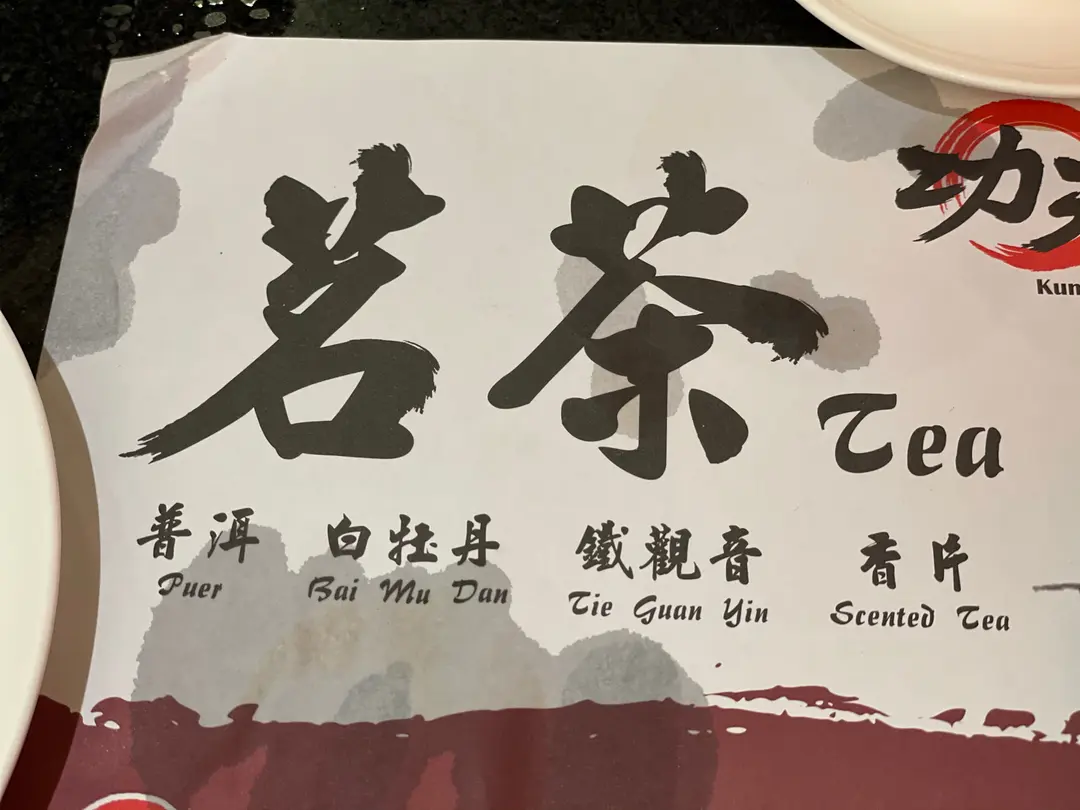 功夫
Kun
茗茶 Tea
普洱 白牡丹 鐵觀音 香片
Puer Bai Mu Dan Tie Guan Yin Scented Tea